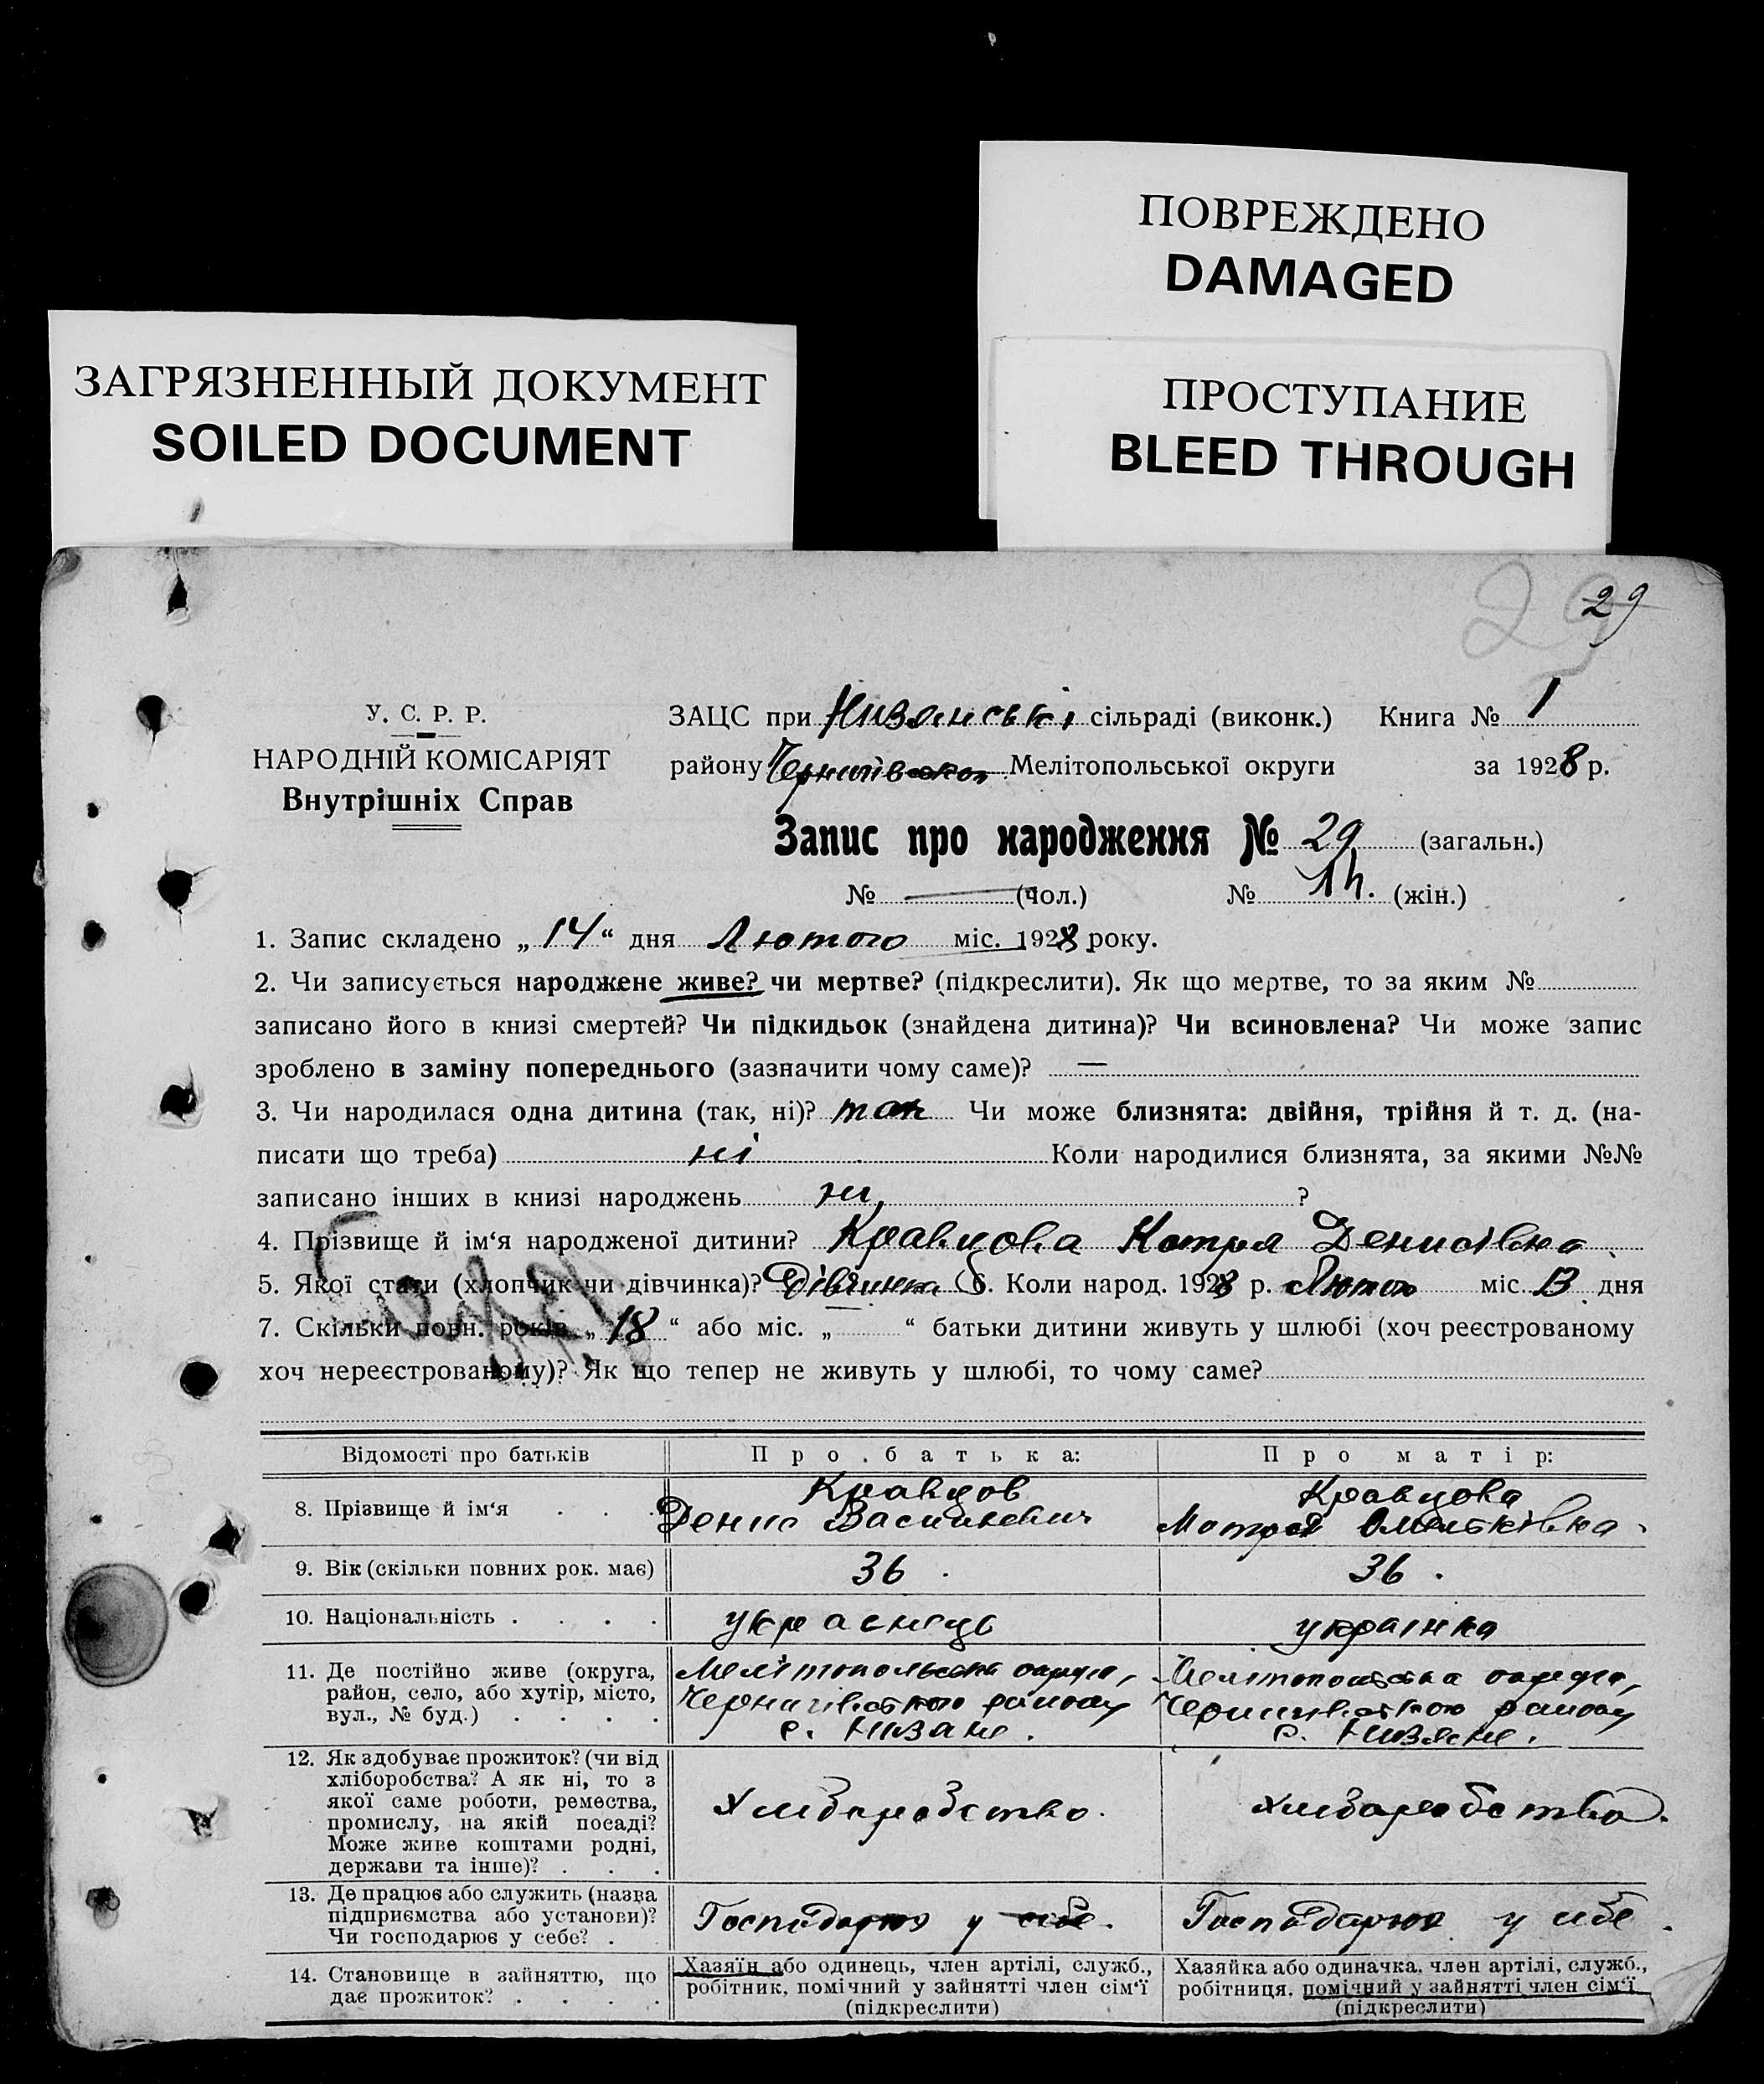 ПОВРЕЖДЕНО
DAMAGED
ЗАГРЯЗНЕННЫЙ ДОКУМЕНТ
SOILED DOCUMENT
ПРОСТУПАНИЕ
BLEED THROUGH
29
29
У. С. Р. Р.
НАРОДНІЙ КОМІСАРІЯТ
Внутрішніх Справ
ЗАЦС при Низянські сільраді (виконк.) Книга № 1
району Чернигівского Мелітопольської округи за 1928 р.
Запис про народження № 29 (загальн.)
№ — (чол.) № 14. (жін.)
1. Запис складено „14“ дня Лютого міс. 1928 року.
2. Чи записується народжене живе? чи мертве? (підкреслити). Як що мертве, то за яким №
записано його в книзі смертей? Чи підкидьок (знайдена дитина)? Чи всиновлена? Чи може запис
зроблено в заміну попереднього (зазначити чому саме)? —
3. Чи народилася одна дитина (так, ні)? так Чи може близнята: двійня, трійня й т. д. (на-
писати що треба) ні Коли народилися близнята, за якими №№
записано інших в книзі народжень ні ?
4. Прізвище й ім‘я народженої дитини? Кравцова Котря Денисівна.
5. Якої стати (хлопчик чи дівчинка)? Дівчинка 6. Коли народ. 1928 р. Лютого міс. 13 дня
7. Скільки повн. років „18“ або міс. „ “ батьки дитини живуть у шлюбі (хоч реєстрованому
хоч нереєстрованому)? Як що тепер не живуть у шлюбі, то чому саме?
Відомості про батьків Про батька: Про матір:
8. Прізвище й ім‘я Кравцов Денис Васильевич Кравцова Мотря Омельківна.
9. Вік (скільки повних рок. має) 36. 36.
10. Національність украєнець украінка
11. Де постійно живе (округа, район, село, або хутір, місто, вул., № буд.)
Мелітопольска округа, Мелитопольска округа,
Чернигівського району Чернигівського району
с. Низяне. с. Низяне.
12. Як здобуває прожиток? (чи від
хліборобства? А як ні, то з
якої саме роботи, ремества,
промислу, на якій посаді?
Може живе коштами родні,
держави та інше)?
Хлиборобство. хлиборобство.
13. Де працює або служить (назва
підприємства або установи)?
Чи господарює у себе?
Господарює у себе. Господарює у себе.
14. Становище в зайняттю, що
дає прожиток?
Хазяїн або одинець, член артілі, служб.,
робітник, помічний у зайнятті член сім‘ї
(підкреслити)
Хазяйка або одиначка, член артілі, служб.,
робітниця, помічний у зайнятті член сім‘ї
(підкреслити)